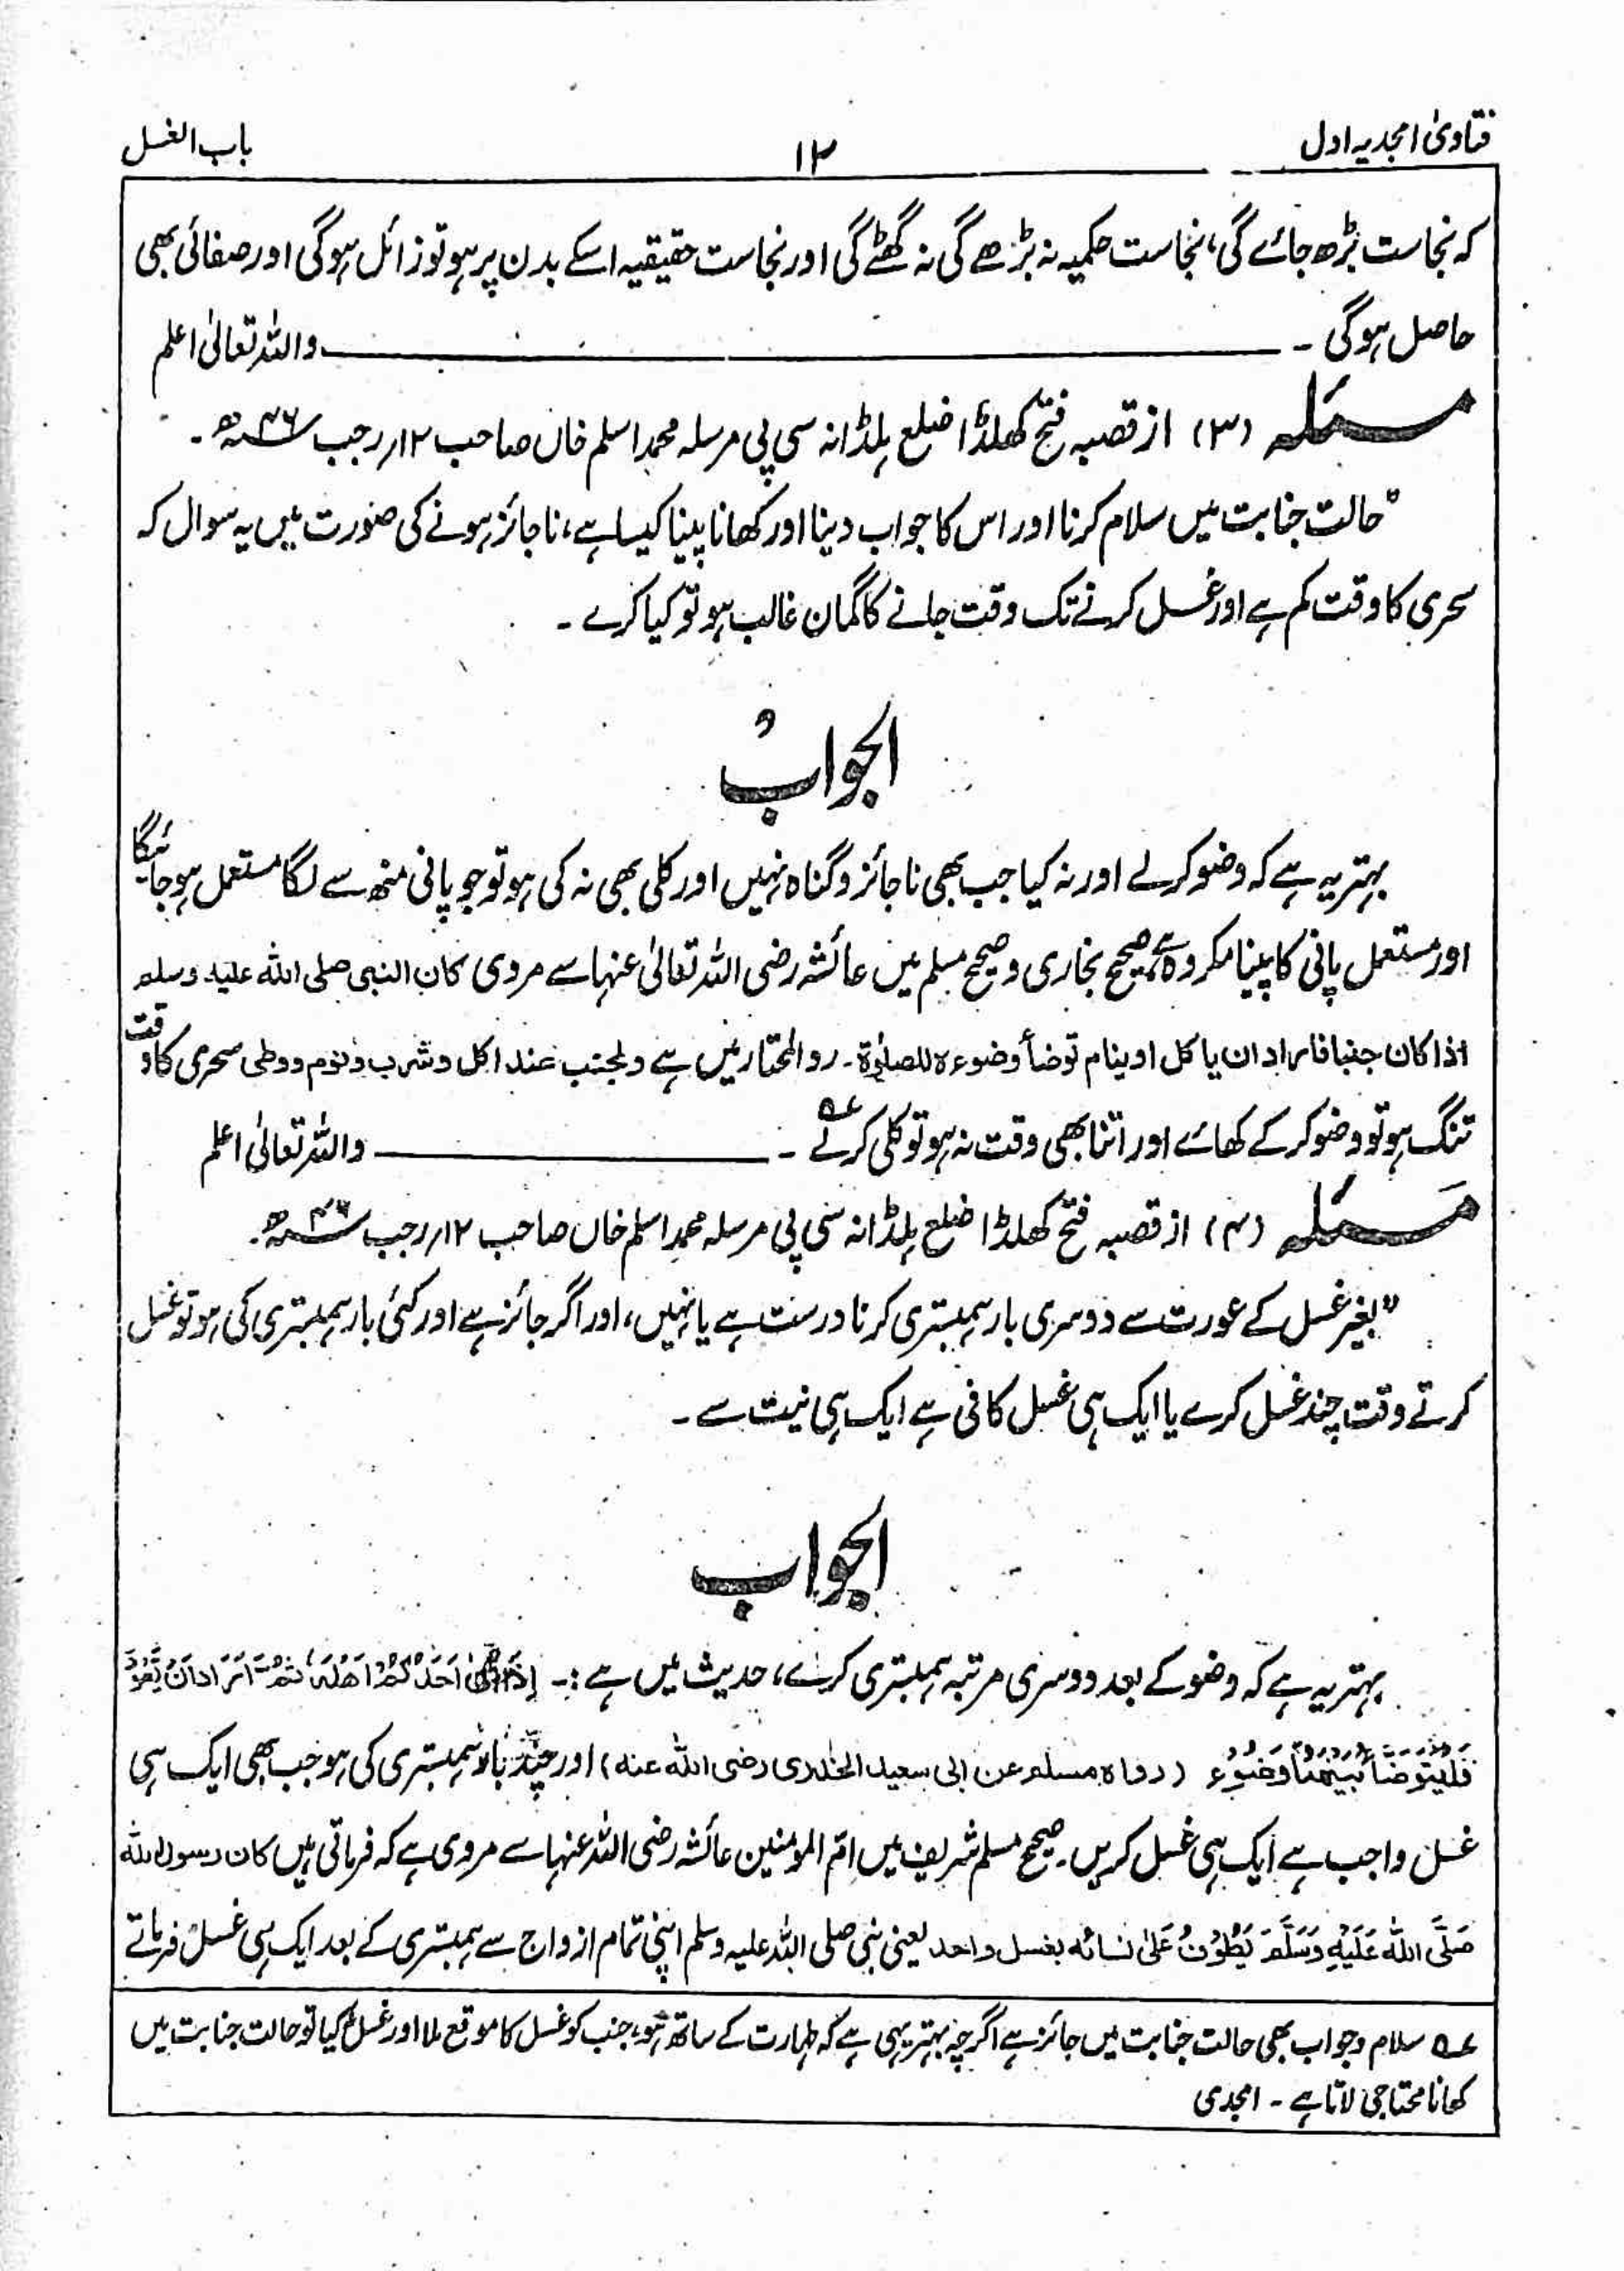 فتاویٰ امجدیہ اول
۱۲
باب الغسل
کہ نجاست بڑھ جائے گی، نجاست حکمیہ نہ بڑھے گی نہ گھٹے گی اور نجاست حقیقیہ اسکے بدن پر ہو تو زائل ہوگی اور صفائی بھی
حاصل ہوگی ۔ واللہ تعالیٰ اعلم
مسئلہ (۳) از قصبہ فتح کھلڈا ضلع بلڈانہ سی پی مرسلہ محمد اسلم خاں صاحب ۱۲؍ رجب ۴۶ھ ۔
"حالت جنابت میں سلام کرنا اور اس کا جواب دینا اور کھانا پینا کیسا ہے، ناجائز ہونے کی صورت میں یہ سوال کہ
سحری کا وقت کم ہے اور غسل کرنے تک وقت جانے کا گمان غالب ہو تو کیا کرے ۔
الجوابُ
بہتر یہ ہے کہ وضو کر لے اور نہ کیا جب بھی ناجائز و گناہ نہیں اور کلی بھی نہ کی ہو تو جو پانی منھ سے لگا مستعمل ہو جائیگا
اور مستعمل پانی کا پینا مکروہ ہے صحیح بخاری و صحیح مسلم میں عائشہ رضی اللہ تعالیٰ عنہا سے مروی کان النبی صلی اللہ علیہ وسلم
اذا کان جنبا فاراد ان یاکل او ینام توضأ وضوءہ للصلوٰۃ ۔ رد المحتار میں ہے ولجنب عند اکل وشرب ونوم ووطی سحری کا وقت
تنگ ہو تو وضو کر کے کھائے اور اتنا بھی وقت نہ ہو تو کلی کر لے عہ ۔ واللہ تعالیٰ اعلم
مسئلہ (۴) از قصبہ فتح کھلڈا ضلع بلڈانہ سی پی مرسلہ محمد اسلم خاں صاحب ۱۲؍ رجب ۴۶ھ ۔
"بغیر غسل کے عورت سے دوسری بار ہمبستری کرنا درست ہے یا نہیں، اور اگر جائز ہے اور کئی بار ہمبستری کی ہو تو غسل
کرتے وقت چند غسل کرے یا ایک ہی غسل کافی ہے ایک ہی نیت سے ۔
الجواب
بہتر یہ ہے کہ وضو کے بعد دوسری مرتبہ ہمبستری کرے، حدیث میں ہے :۔ اِذَا اَتٰی اَحَدُکُمْ اَھْلَہٗ ثُمَّ اَرَادَ اَنْ یَّعُوْدَ
فَلْیَتَوَضَّأْ بَیْنَھُمَا وُضُوْءً (رواہ مسلم عن ابی سعید الخدری رضی اللہ عنہ) اور چند بار ہمبستری کی ہو جب بھی ایک ہی
غسل واجب ہے ایک ہی غسل کریں ۔ صحیح مسلم شریف میں ام المومنین عائشہ رضی اللہ عنہا سے مروی ہے کہ فرماتی ہیں کان رسول اللہ
صَلَّی اللہ عَلَیْہِ وَسَلَّمَ یَطُوْفُ عَلیٰ نسائہ بغسل واحد یعنی نبی صلی اللہ علیہ وسلم اپنی تمام ازواج سے ہمبستری کے بعد ایک ہی غسل فرماتے
عہ سلام و جواب بھی حالت جنابت میں جائز ہے اگرچہ بہتر یہی ہے کہ طہارت کے ساتھ ہو، جنب کو غسل کا موقع ملا اور غسل نہ کیا تو حالت جنابت میں
کھانا محتاجی لاتا ہے ۔ امجدی